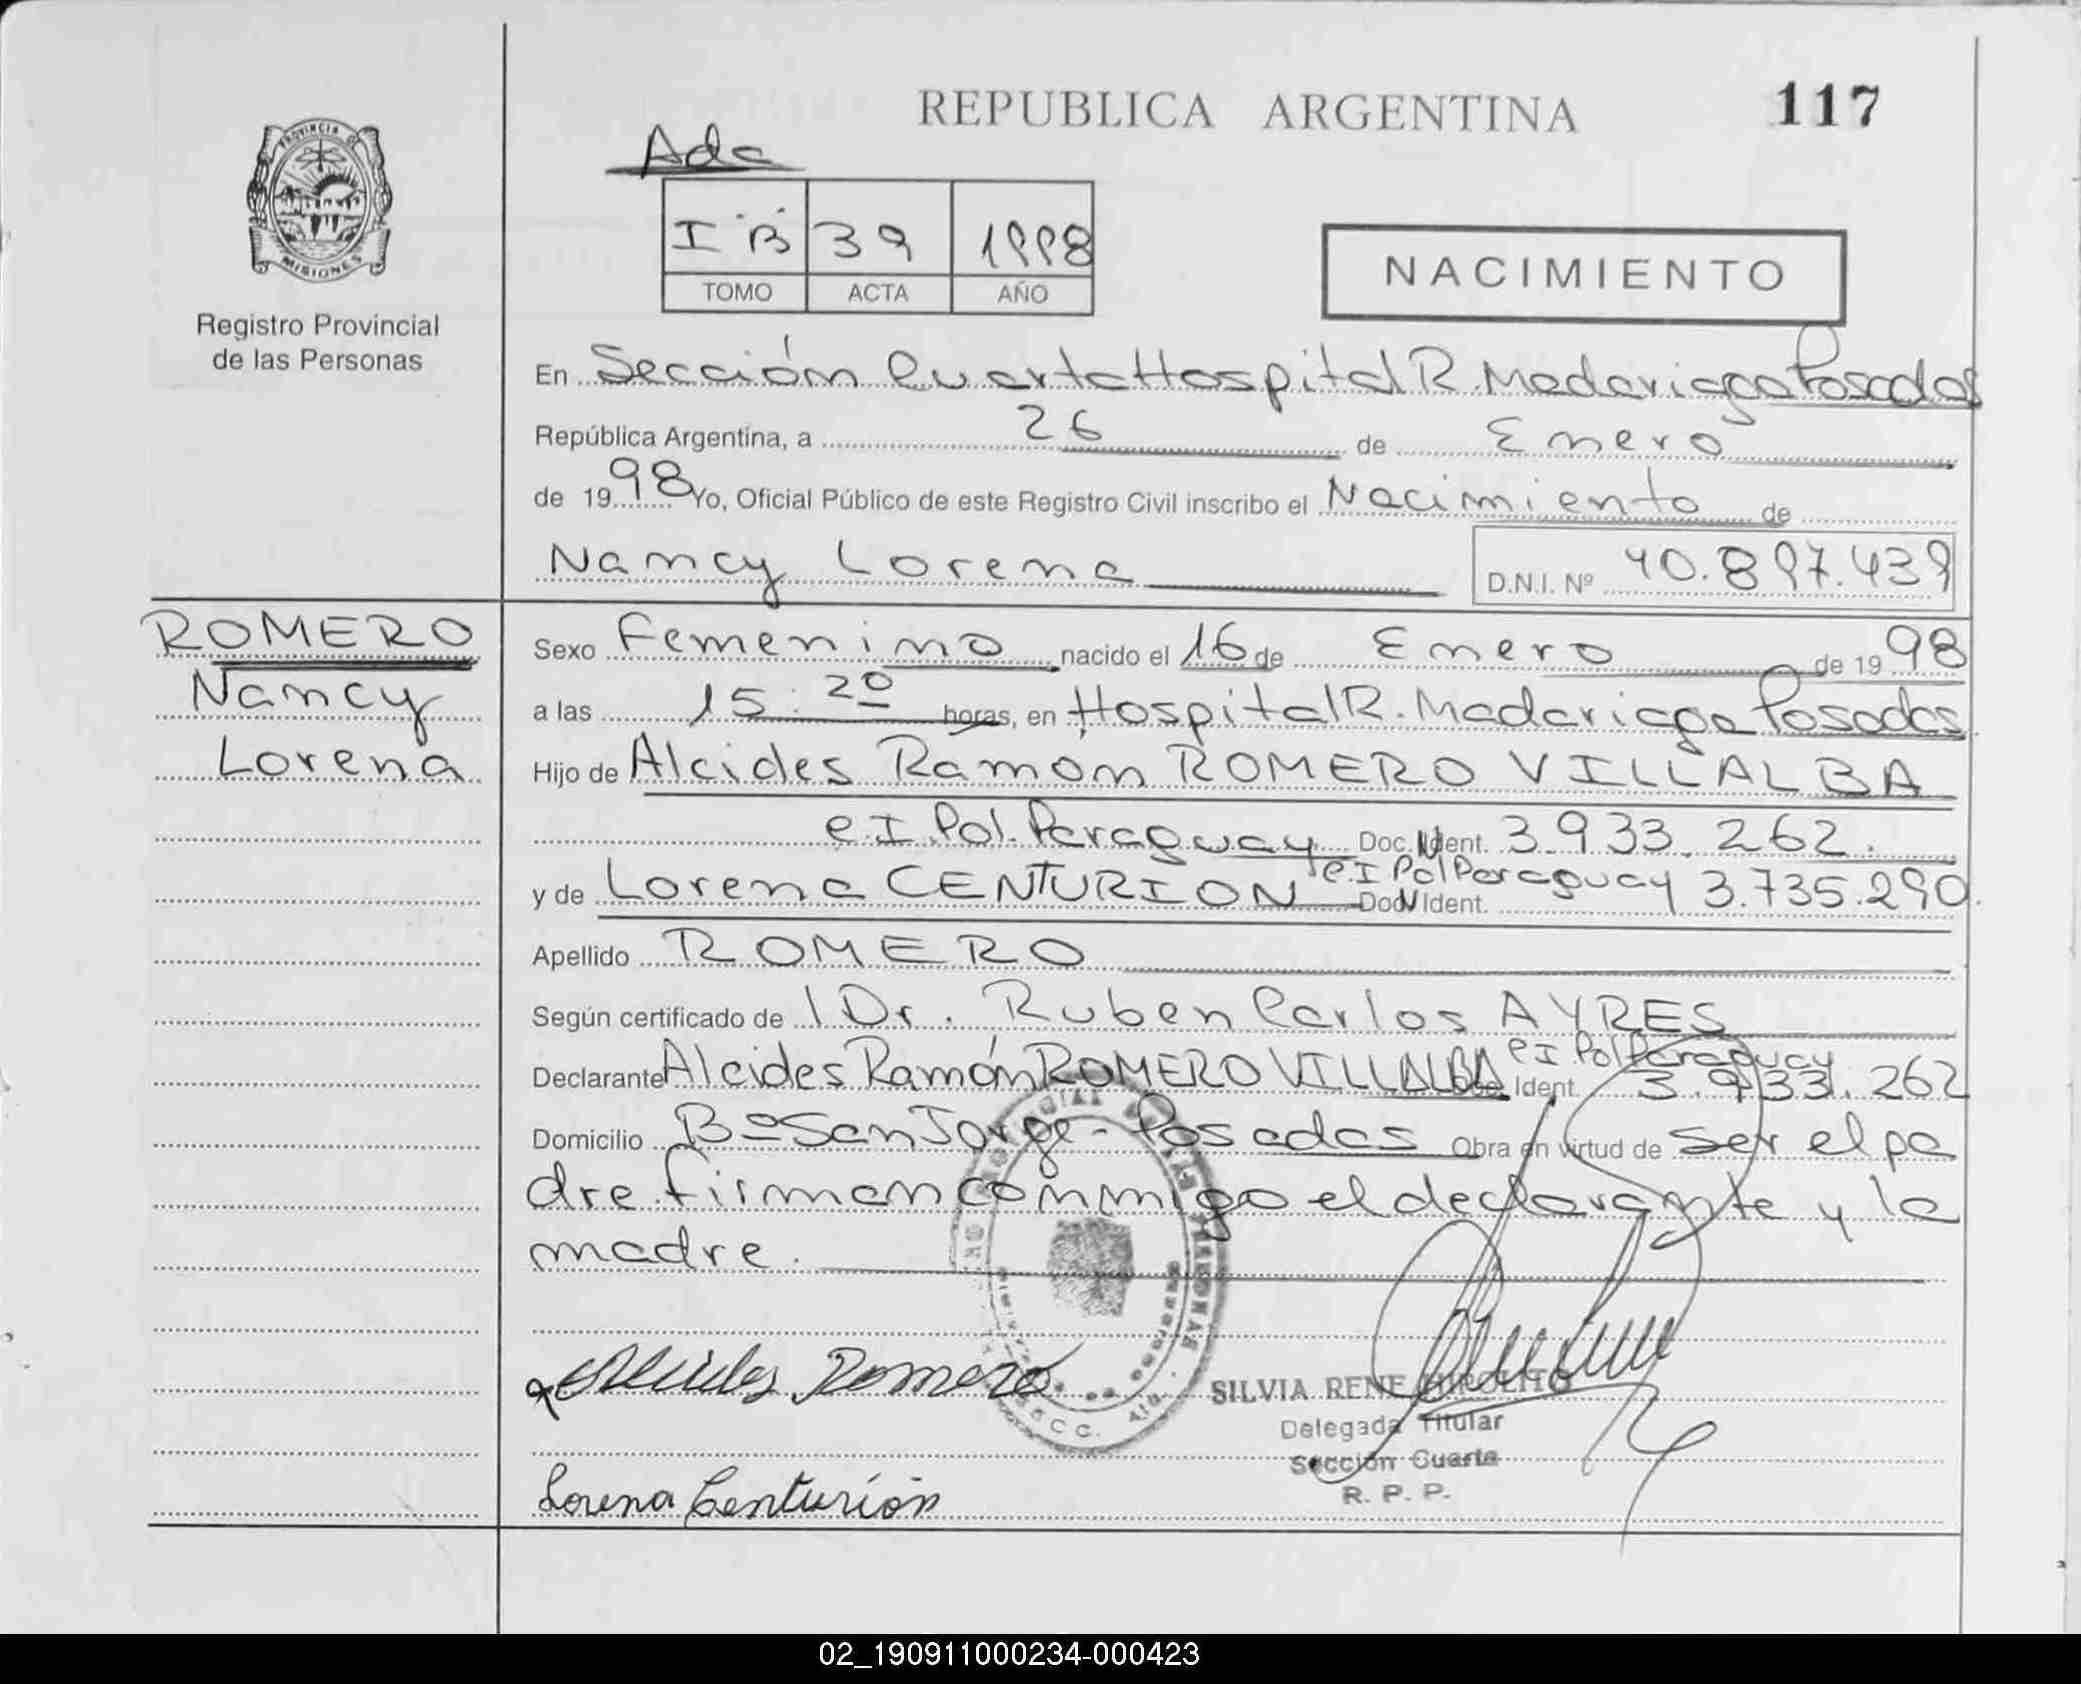 REPUBLICA ARGENTINA
117
PROVINCIA DE
MISIONES
Registro Provincial
de las Personas
Ada
I "B" 39 1998
TOMO ACTA AÑO
NACIMIENTO
En Sección Cuarta Hospital R. Madariaga Posadas
República Argentina, a 26 de Enero
de 1998 Yo, Oficial Público de este Registro Civil inscribo el Nacimiento de
Nancy Lorena D.N.I. Nº 40.897.439
ROMERO
Nancy
Lorena
Sexo Femenino nacido el 16 de Enero de 1998
a las 15:20 horas, en Hospital R. Madariaga Posadas
Hijo de Alcides Ramon ROMERO VILLALBA
C.I. Pol. Paraguay Doc. Ident. 3.933.262.
y de Lorena CENTURION C.I. Pol Paraguay Doc. Ident. 3.735.290.
Apellido ROMERO
Según certificado de l Dr. Ruben Carlos AYRES
Declarante Alcides Ramón ROMERO VILLALBA C.I. Pol Paraguay Doc. Ident. 3.933.262
Domicilio Bº San Jorge - Posadas Obra en virtud de ser el pa
dre firman conmigo el declarante y la
madre.
Alcides Romero
SILVIA RENE HIPOLITO
Delegada Titular
Sección Cuarta
R. P. P.
Lorena Centurión
02_190911000234-000423